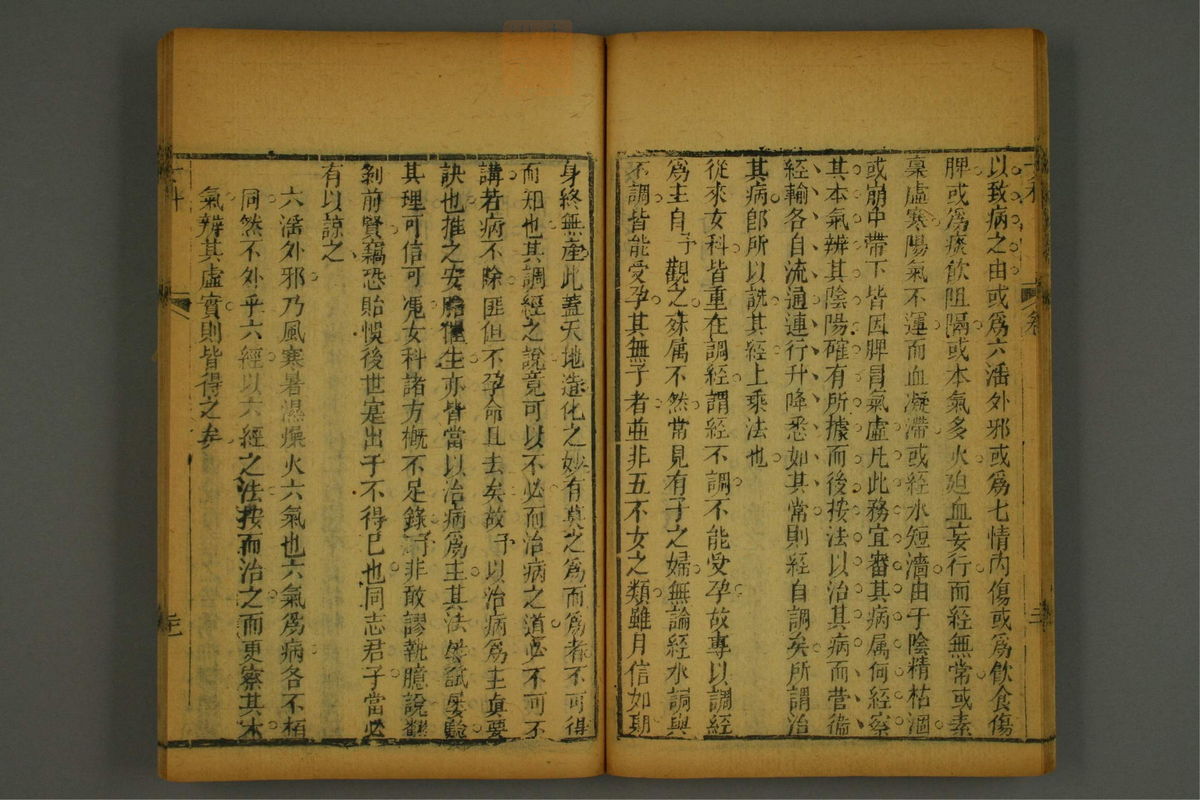 以致病之由或爲六滛外邪或爲七情內傷或爲飲食傷
脾或爲痰飲阻隔或本氣多火廹血妄行而經無常或素
稟虛寒陽氣不運而血凝滯或經水短濇由于陰精枯涸
或崩中帶下皆因脾胃氣虛凡此務宜審其病属何經察
其本氣辨其陰陽確有所據而後按法以治其病而營衞
經輸各自流通連行升降悉如其常則經自調矣所謂治
其病卽所以調其經上乘法也
從來女科皆重在調經謂經不調不能受孕故專以調經
爲主自予觀之殊属不然常見有子之婦無論經水調與
不調皆能受孕其無子者並非五不女之類雖月信如期
身終無產此蓋天地造化之妙有莫之爲而爲者不可得
而知也其調經之說竟可以不必而治病之道必不可不
講若病不除匪但不孕命且去矣故予以治病爲主真要
訣也推之安胎催生亦皆當以治病爲主其法屡試屡驗
其理可信可凴女科諸方槪不足錄予非敢謬執臆說翻
剝前賢竊恐貽悞後世寔出于不得已也同志君子當必
有以諒之
六滛外邪乃風寒暑濕燥火六氣也六氣爲病各不相
同然不外乎六經以六經之法按而治之而更察其本
氣辨其虛實則皆得之矣